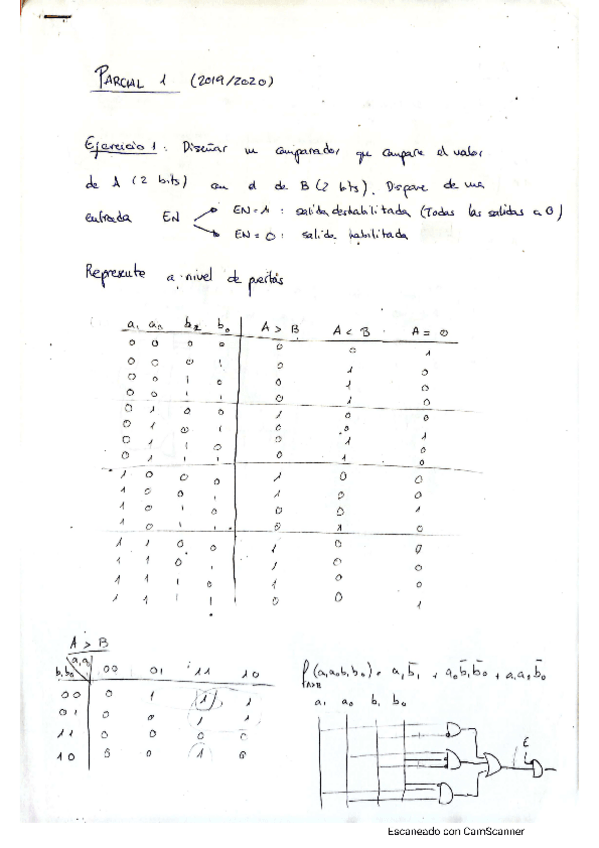 PARCIAL 1 (2019/2020)
Ejercicio 1: Diseñar un comparador que compare el valor
de A (2 bits) con el de B (2 bits). Dispone de una
entrada EN
EN=1: salida deshabilitada (Todas las salidas a 0)
EN=0: salida habilitada
Represente a nivel de puertas
a₁ a₀ b₁ b₀ A > B A < B A = 0
0 0 0 0 0 0 1
0 0 0 1 0 1 0
0 0 1 0 0 1 0
0 0 1 1 0 1 0
0 1 0 0 1 0 0
0 1 0 1 0 0 1
0 1 1 0 0 1 0
0 1 1 1 0 1 0
1 0 0 0 1 0 0
1 0 0 1 1 0 0
1 0 1 0 0 0 1
1 0 1 1 0 1 0
1 1 0 0 1 0 0
1 1 0 1 1 0 0
1 1 1 0 1 0 0
1 1 1 1 0 0 1
A > B
b₁b₀ a₁a₀ 00 01 11 10
00 0 1 1 1
01 0 0 1 1
11 0 0 0 0
10 0 0 1 0
f (a₁a₀b₁b₀) = a₁b̄₁ + a₀b̄₁b̄₀ + a₁a₀b̄₀
A>B
a₁ a₀ b₁ b₀
E
Escaneado con CamScanner